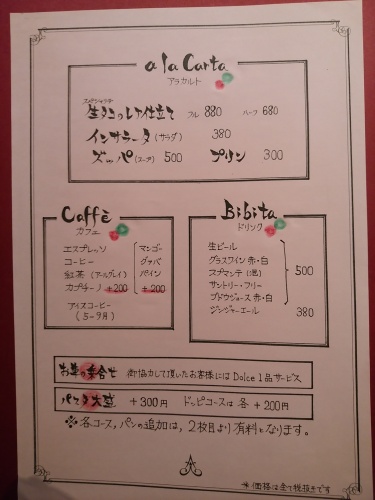 a la Carta
アラカルト
フル 880 ハーフ 680
インサラータ (サラダ) 380
ズッパ (スープ) 500 プリン 300
Caffè
カフェ
エスプレッソ
コーヒー
紅茶 (アールグレイ)
カプチーノ +200
アイスコーヒー
(5-9月)
マンゴー
グァバ
パイン
+200
Bibita
ドリンク
生ビール
グラスワイン 赤・白
スプマンテ (泡)
サントリー・フリー
ブドウジュース 赤・白
500
ジンジャーエール 380
御協力して頂いたお客様には Dolce 1品サービス
パスタ大盛 +300円 ドッピコースは 各 +200円
※各コース,パンの追加は,2枚目より有料となります。
※価格は全て税抜きです